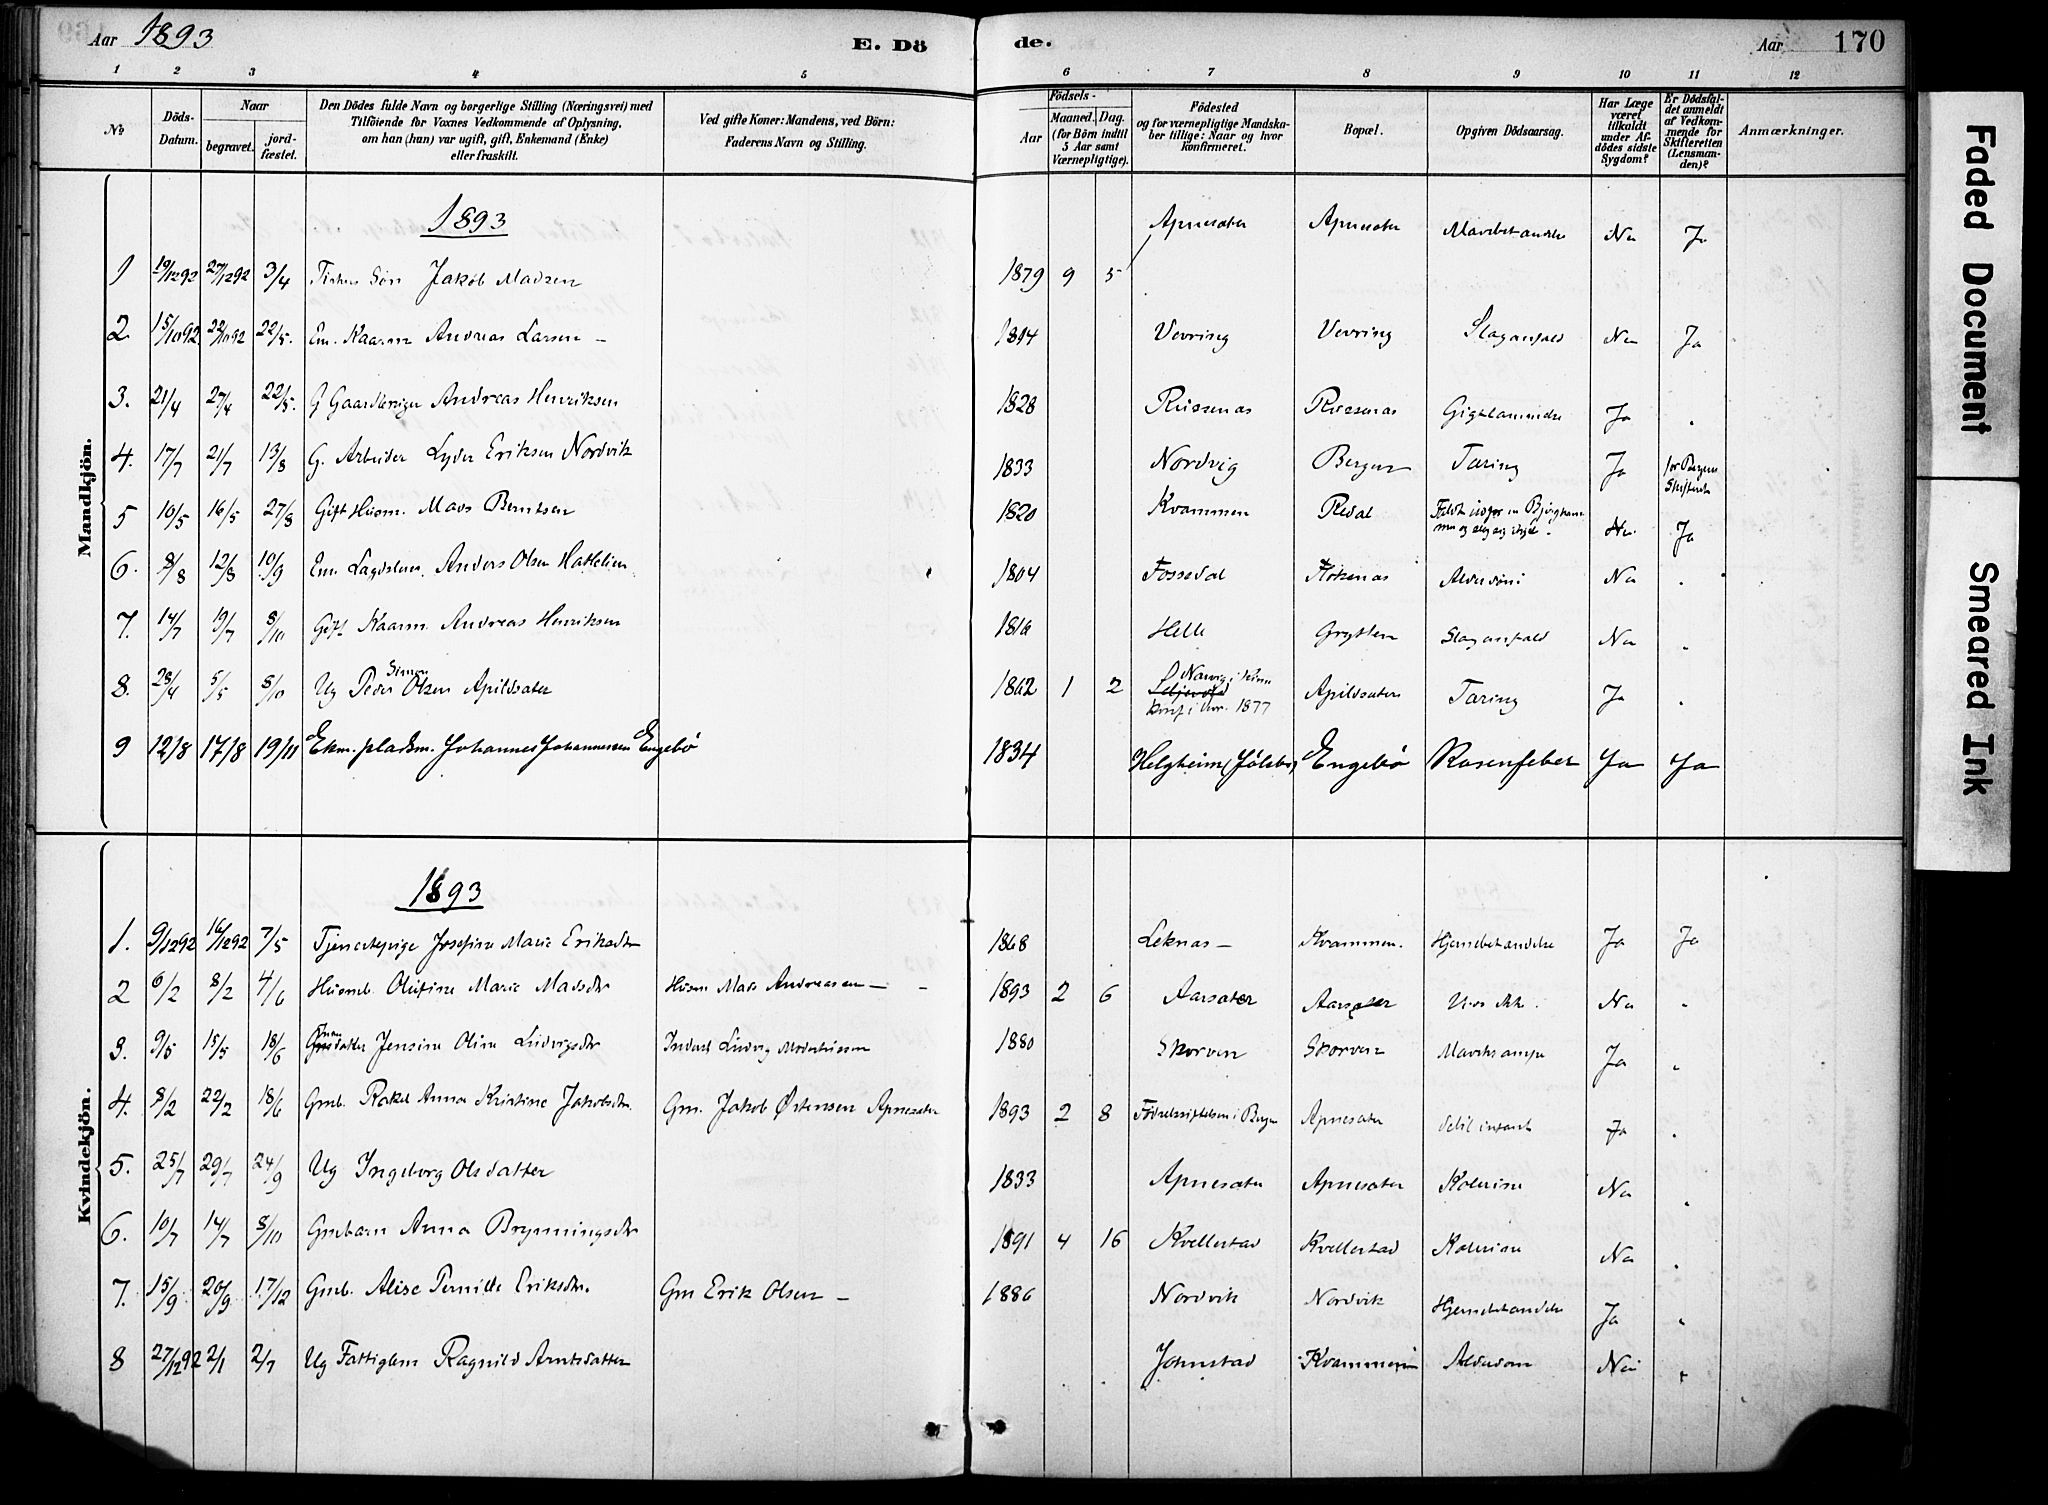 Aar 1893 E. Dö de. Aar 170
1 2 3 4 5 6 7 8 9 10 11 12
No
Döds-Datum.
Naar begravet. jordfæstet.
Den Dödes fulde Navn og borgerlige Stilling (Næringsvei) med
Tilföiende for Voxnes Vedkommende af Oplysning,
om han (hun) var ugift, gift, Enkemand (Enke)
eller fraskilt.
Ved gifte Koner: Mandens, ved Börn:
Faderens Navn og Stilling.
Födsels-
Aar Maaned. Dag.
(for Börn indtil 5 Aar samt Værnepligtige).
Födested
og for værnepligtige Mandskaber tillige: Naar og hvor konfirmeret.
Bopæl.
Opgiven Dödsaarsag.
Har Læge været tilkaldt under Afdödes sidste Sygdom?
Er Dödsfaldet anmeldt af Vedkommende for Skifteretten (Lensmanden)?
Anmærkninger.
Mandkjön.
1893
1 19/12 92 27/12 92 3/4 Søn Jakob Madsen 1879 9 5 Apnesæter Apnesæter Nei Ja
2. 15/10 92 22/10 92 22/5. Em. Kaarm Andreas Larsen – 1814 Vevring Vevring Slaganfald Nei Ja
3. 21/4 27/4 22/5. G Gaardbruger Andreas Henriksen 1828 Risenæs Risenæs Ja "
4. 17/7 21/7 13/8 G. Arbeider Lyder Eriksen Nordvik 1833 Nordvig Bergen Tæring Ja for Bergens Skifteret
5 10/5 16/5 27/8 Gift Husm. Mads Berntsen 1820 Kvammen Redal Nei. Ja
6. 8/8 12/8 10/9 Em. Anders Olsen Hatlelien 1804 Fossedal Stokenæs Nei "
7. 14/7 19/7 8/10 Gift Kaarm. Andreas Henriksen 1816 Helle Grytten Slaganfald Nei "
8. 28/4 5/5 8/10 Ug Peder Simon Olsen Apildsæter 1862 1 2 1877 Apildsæter Tæring Ja "
9 12/8 17/8 19/11 Ekm. pladsm. Johannes Johannessen Engebö 1834 Helgheim (Jölster) Engebö Rosenfeber Ja Ja
Kvindekjön.
1893
1. 9/12 92 16/12 92 7/5 Tjenestepige Josefine Marie Eriksdtr 1868 Leknæs – Kvammen. Hjernebetændelse Ja Ja
2 6/2 8/2 4/6 Husmb. Olufine Marie Madsdtr Husm Mads Andreassen – 1893 2 6 Aarsæter Aarsæter Nei "
3. 9/5 15/5 18/6 Jensine Oline Ludvigsdtr Inderst Ludvig 1880 Skorven Skorven Ja "
4. 8/2 22/2 18/6 Gmb. Rakel Anna Kristine Jakobsdtr. Gm. Jakob Østensen Apnesæter 1893 2 8 Fødselsstiftelsen i Bergen Apnesæter Ja "
5. 25/7 29/7 24/9 Ug Ingeborg Olsdatter 1833 Apnesæter Apnesæter Kolerine Nei "
6. 10/7 14/7 8/10 Gmbarn Anna Brynningsdtr 1891 4 16 Kvellestad Kvellestad Kolerine Nei "
7. 15/9 20/9 17/12 Gmb. Alise Pernille Eriksdtr. Gm Erik Olsen – 1886 Nordvik Nordvik Hjernebetændelse Ja "
8 27/12 92 2/1 2/7 Ug Fattiglem Ragnild Arntsdatter Johnstad Kvammen Alderdom Nei "
Faded Document
Smeared Ink